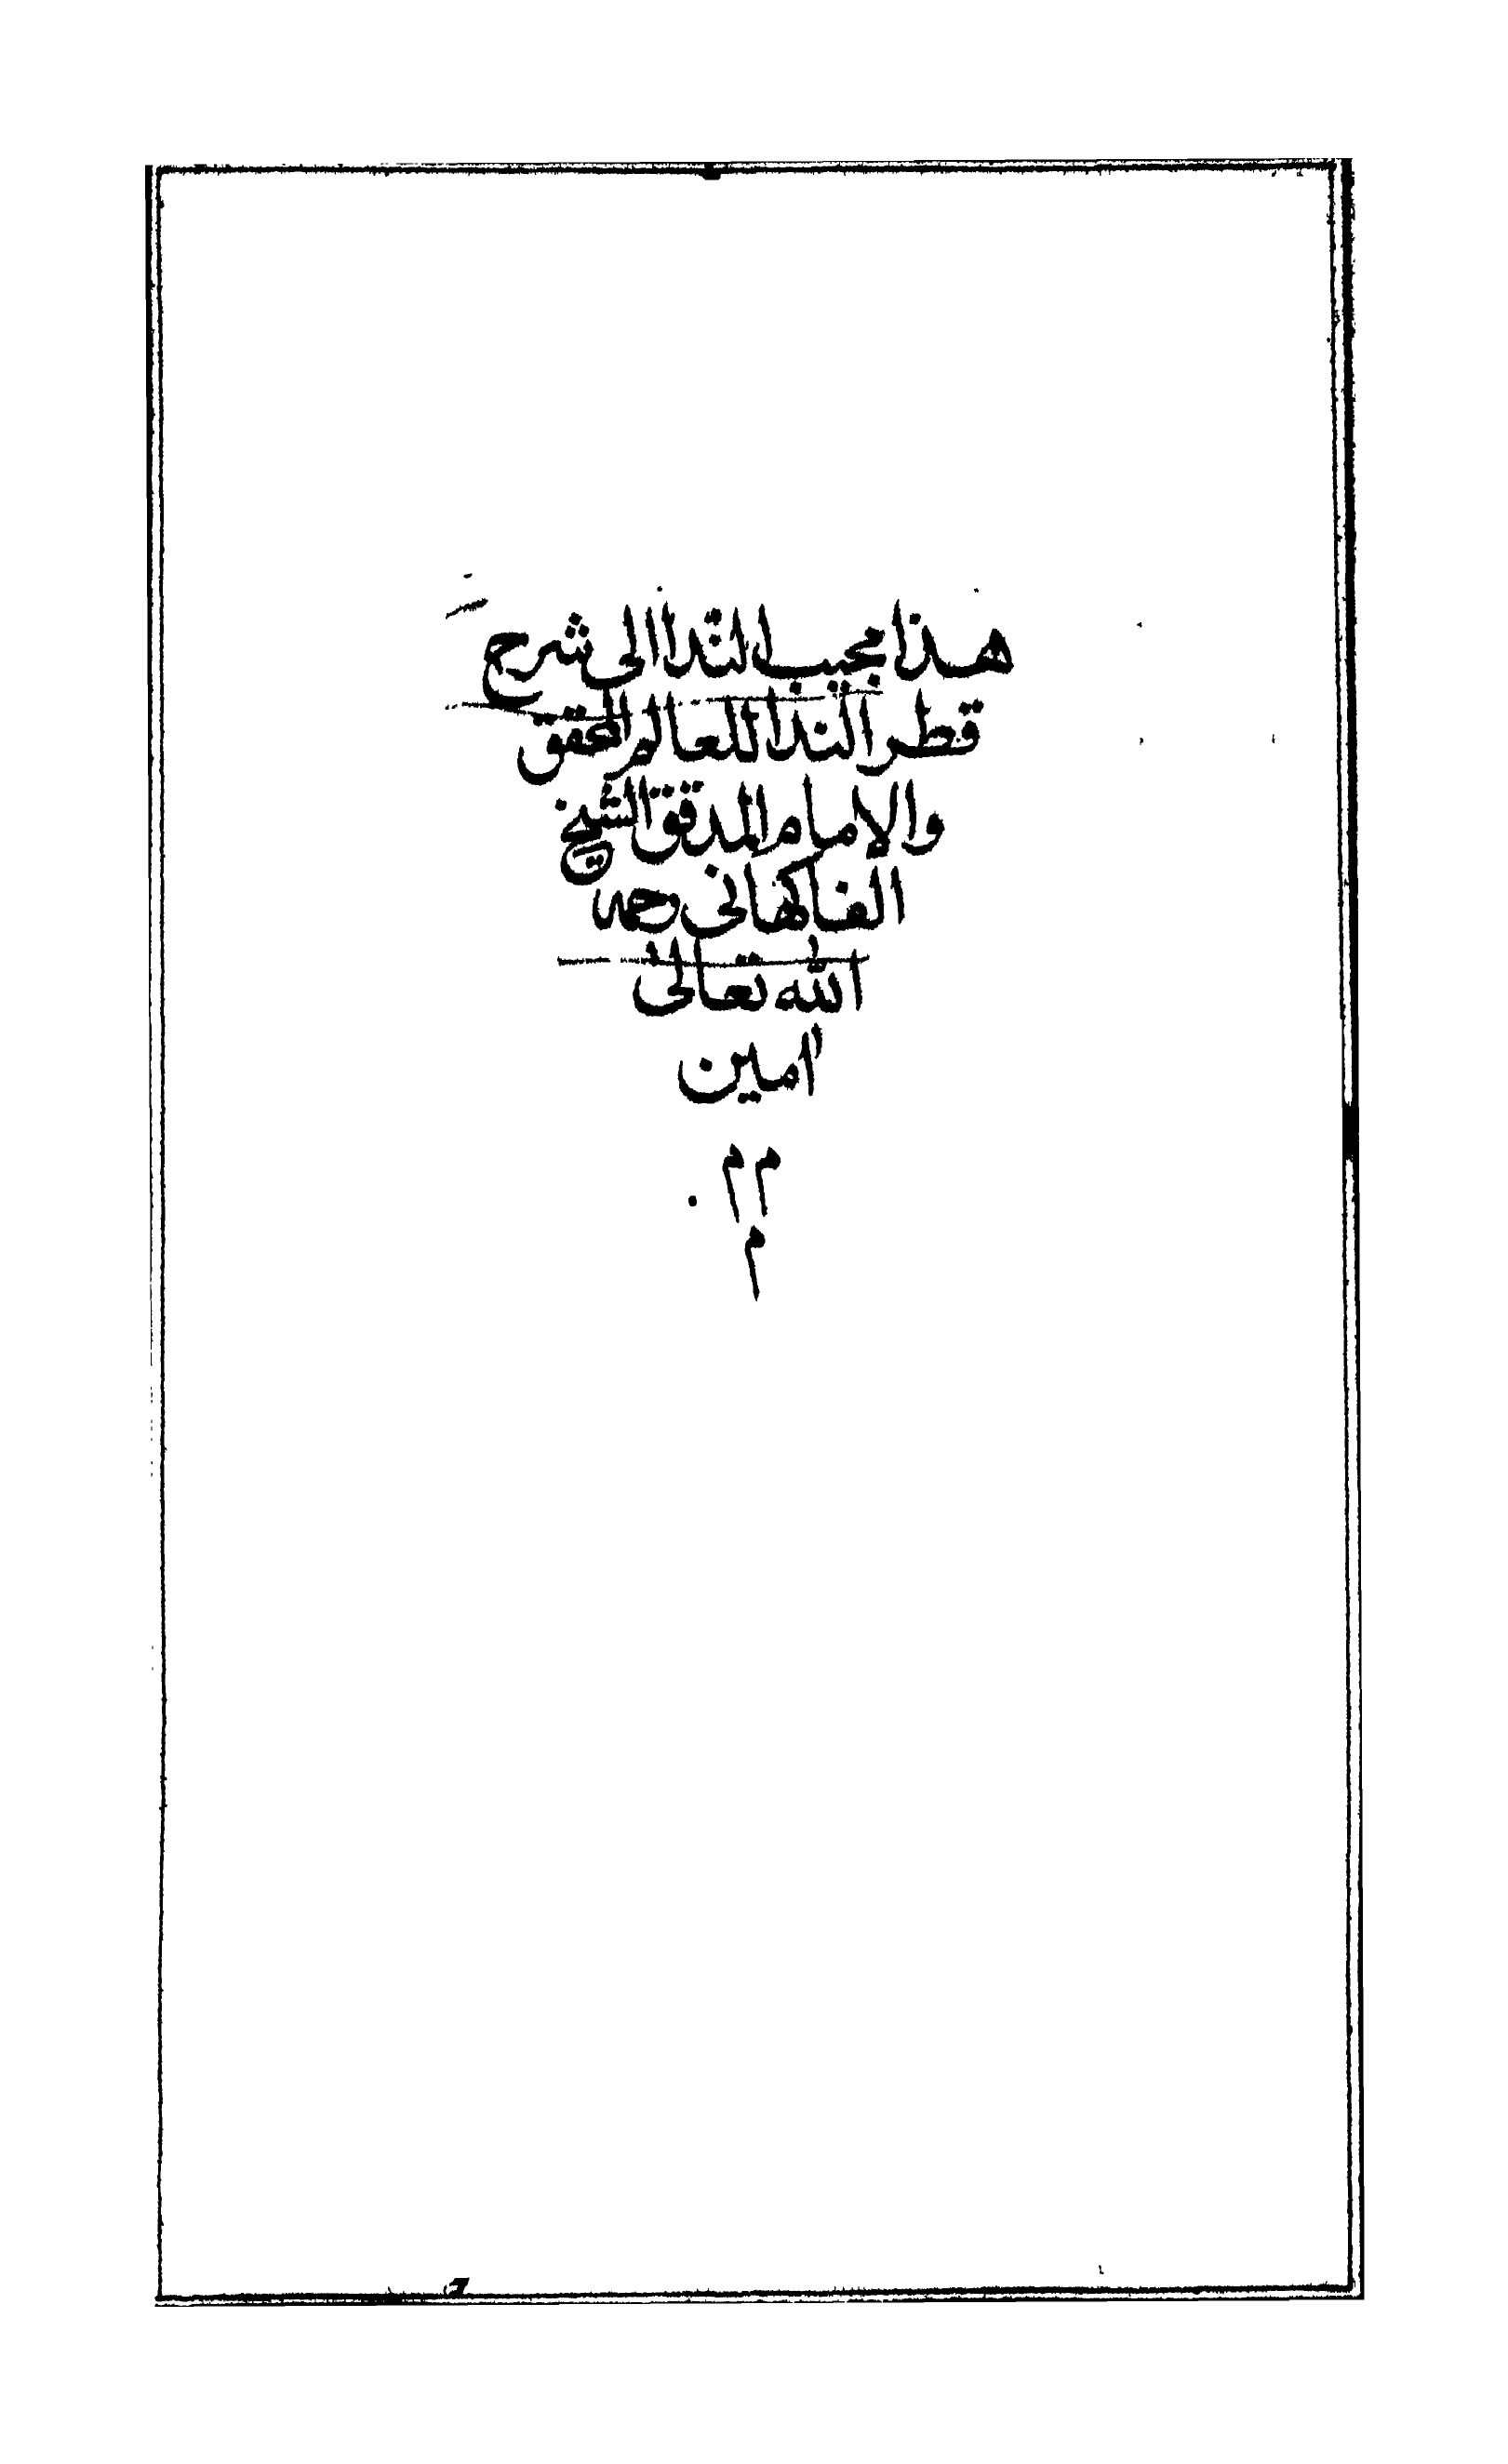 هذا مجيب الندا الى شرح
قطر الندا للعالم المحقق
والامام المدقق الشيخ
الفاكهانى رحمه
الله تعالى
امين
م م
م